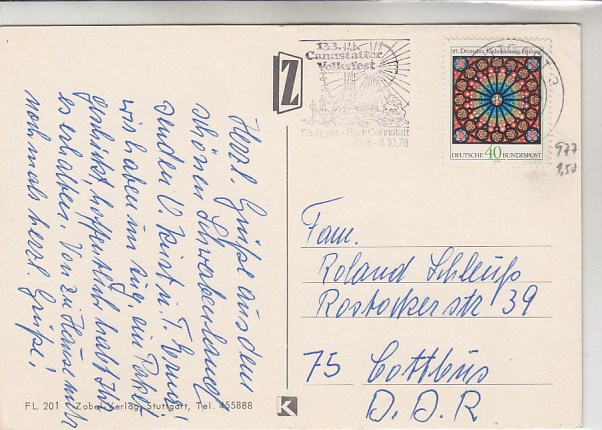 Herzl. Grüße aus dem
schönen Schwabenland
senden O. Kurt u. T. Erna!
wir haben im Aug. ein Paket
geschickt, hoffentlich habt Ihr
es erhalten. Von zu Hause mehr
nochmals herzl. Grüße!
FL 201 Zobel-Verlag, Stuttgart, Tel. 455888
Z
133.
Cannstatter
Volksfest
Stuttgart - Bad Cannstatt
23.9. - 8.10.78
85. Deutscher Katholikentag Freiburg
DEUTSCHE 40 BUNDESPOST
977
1,50
Fam.
Roland Schleuß
Rostockerstr 39
75 Cottbus
D. D. R
K